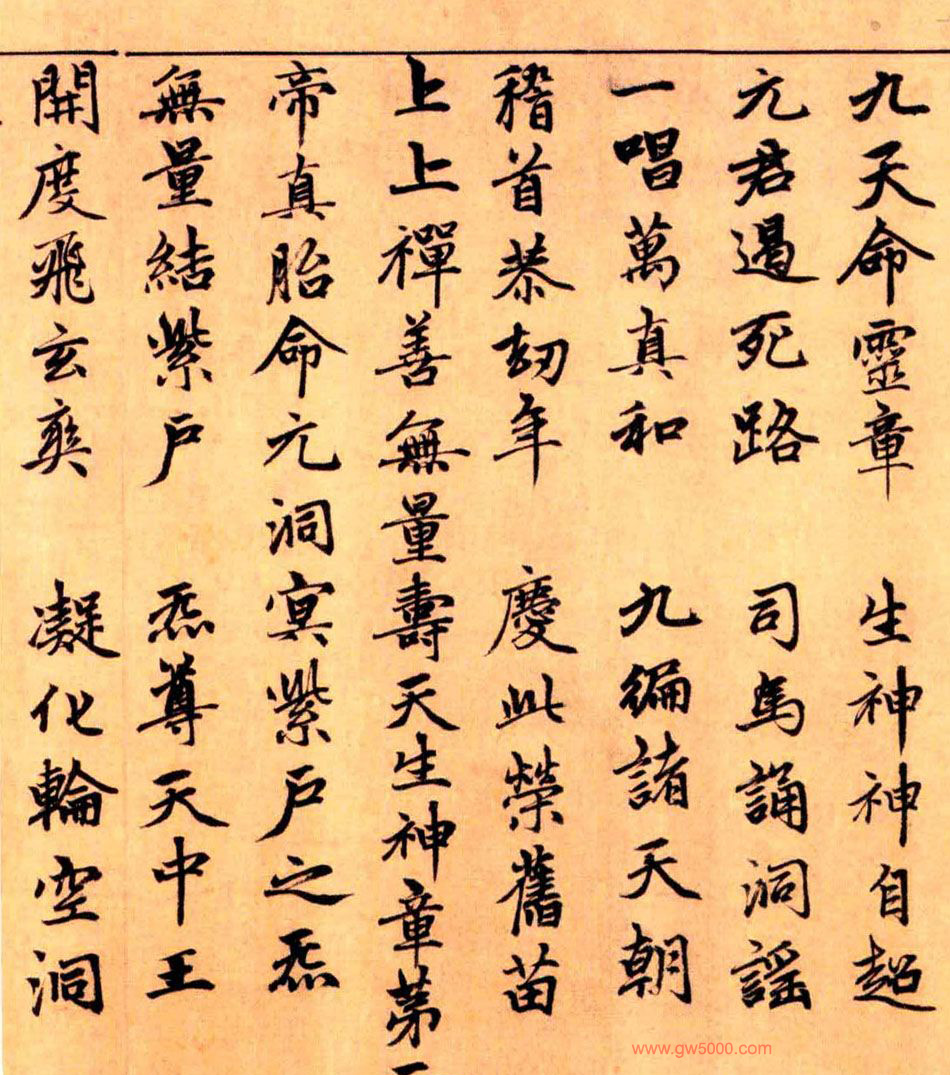 九天命靈章 生神神自超
元君遏死路 司馬誦洞謠
一唱萬真和 九編諸天朝
稽首恭劫年 慶此榮舊苗
上上禪善無量壽天生神章第
帝真胎命元洞冥紫戶之炁
無量結紫戶 炁尊天中王
開度飛玄爽 凝化輪空洞
www.gw5000.com